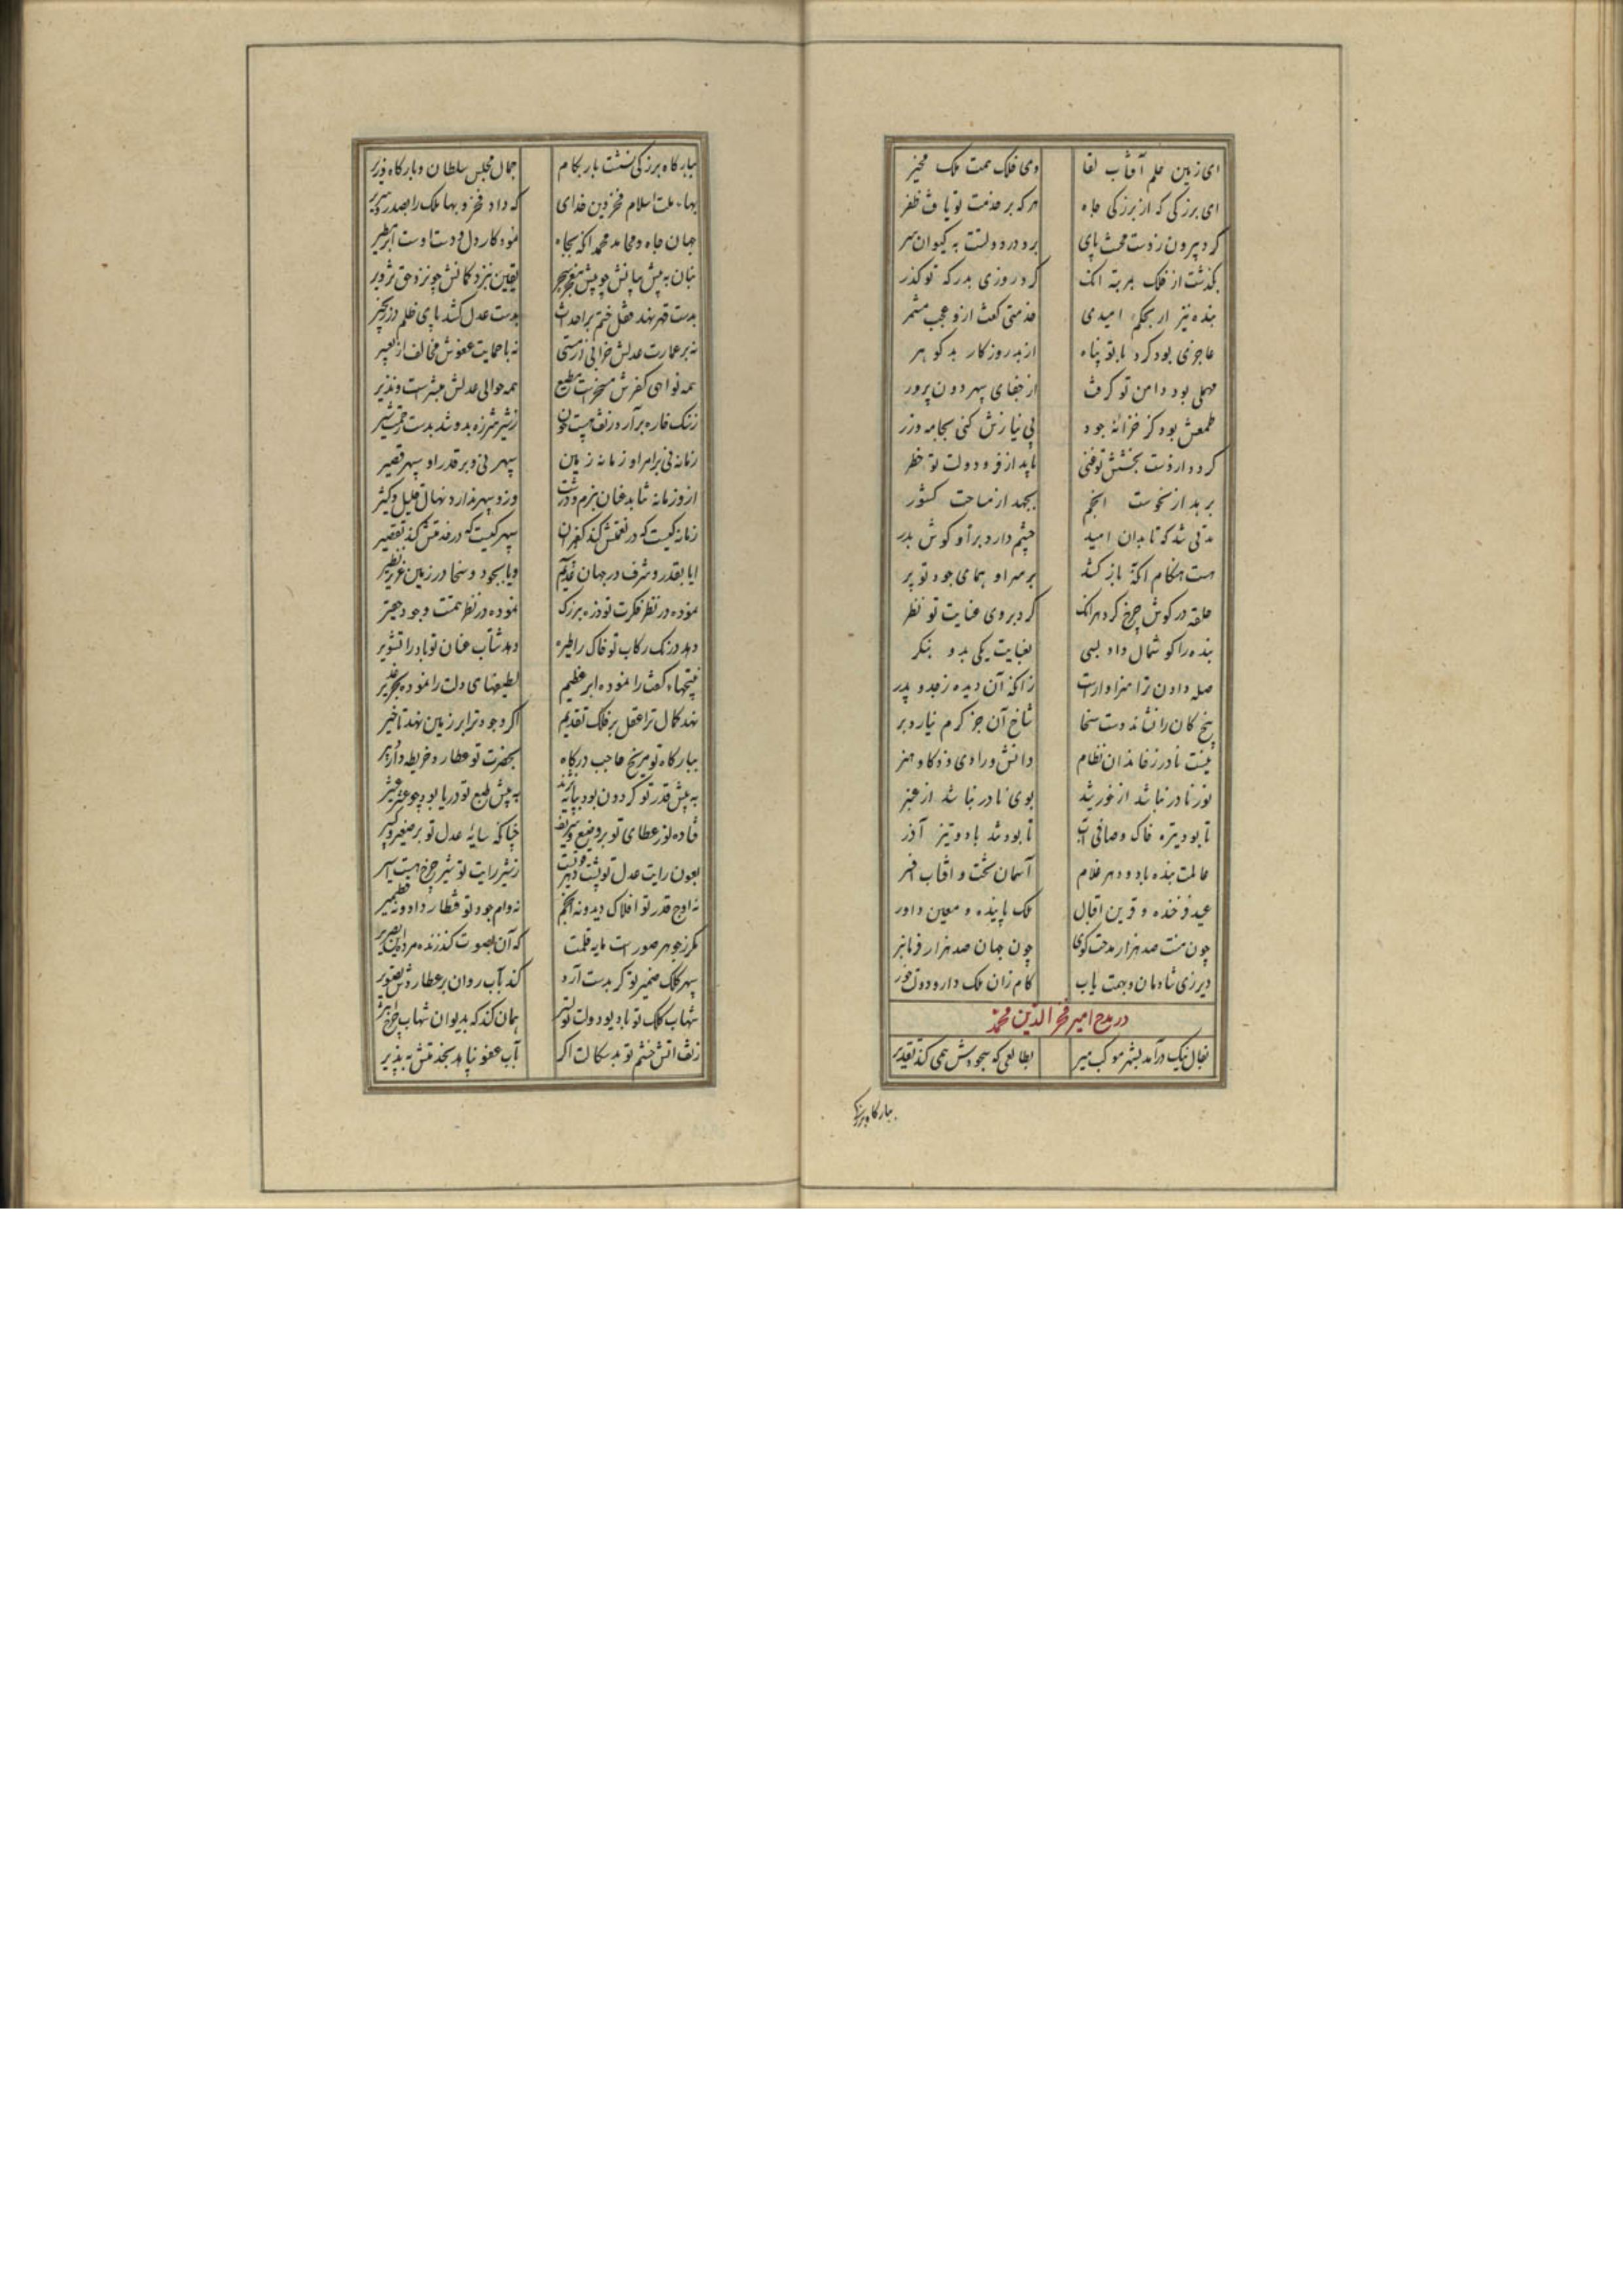 ای زمین حلم آفتاب لقا وی فلک همت ملک مخبر
ای بزرگی که از بزرگی جاه هرکه بر خدمت تو یافت ظفر
کرد بیرون ز دست محنت پای برد در دولتت به کیوان سر
بگذشت از فلک بمرتبه آنک کرد روزی بدرگه تو گذر
بنده نیز ار بحکم امیدی خدمتی گفت ازو عجب مشمر
عاجزی بود کرد با تو پناه از بد روزگار بد گوهر
مهملی بود دامن تو گرفت از جفای سپهر دون پرور
طمعش بود کز خزانه جود بی نیازش کنی بجامه و زر
کرد دارد ز دست بخشش تو فنی یابد از فر دولت تو خطر
برهد از نحوست انجم بجهد از مساحت کشور
مدتی شد که تا بدان امید چشم دارد براه و گوش بدر
هست هنگام آنکه باز کند بر سر او همای جود تو پر
حلقه در گوش چرخ کرد هرآنک کرد بر وی عنایت تو نظر
بنده را گوشمال داد بسی بعنایت یکی بدو بنگر
صله دادن ترا سزاوارست زانکه آن دیده ز جد و پدر
بیخ کان را نشاند دست سخا شاخ آن جز کرم نیارد بر
نیست نادر ز خاندان نظام دانش و رادی و ذکا و هنر
نور نادر نباشد از خورشید بوی نادر نباشد از عنبر
تا بود تیره خاک و صافی آب تا بود تند باد و تیز آذر
عالمت بنده باد و دهر غلام آسمان تخت و آفتاب افسر
عید فرخنده و قرین اقبال ملک پاینده و معین داور
چون منت صد هزار مدحت گوی چون جهان صد هزار فرمانبر
دیر زی شادمان و نهمت یاب کام ران ملک دار و دولت خور
در مدح امیر فخر الدین محمد
بفال نیک درآمد بشهر موکب میر بطالعی که سجودش همی کند تقدیر
ببارگاه بزرگی
ببارگاه بزرگی نشست باز بکام جمال مجلس سلطان و بارگاه وزیر
بهاء ملت اسلام فخر دین خدای که داد فخر و بها ملک را بصدر و سریر
جهان جاه و محامد محمد آنکه بجاه نمود کار دل و دست اوست ابر مطیر
بنان به پیش بیانش چو پیش معجز سحر یقین بنزد گمانش چو نزد حق تزویر
بدست قهر نهد قفل ختم بر احداث بدست عدل کشد پای ظلم در زنجیر
نه بر عمارت عدلش خرابی از مستی نه با حمایت عفوش مخالف از تعییر
همه نواحی کفرش مسخرست و مطیع همه حوالی عدلش مبشرست و نذیر
ز سنگ خاره برآرد ز تف هیبت خون ز شیر شرزه بدوشد بدست رحمت شیر
زمانه نی بر امر او زمانه زمین سپهر نی و بر قدر او سپهر قصیر
ازو زمانه نتابد عنان بنرم و درشت وزو سپهر ندارد نهان قلیل و کثیر
زمانه کیست که در نعمتش کند کفران سپهر کیست که در خدمتش کند تقصیر
ایا بقدر و شرف در جهان عدیم و یا بجود و سخا در زمین عزیز نظیر
نموده در نظر فکرت تو ذره بزرگ نموده در نظر همتت وجود حقیر
دهد درنگ رکاب تو خاک را طیره دهد شتاب عنان تو باد را تشویر
نتیجهاء کفت را نموده ابر عظیم لطیفهای دلت را نموده بحر غدیر
نهد کمال ترا عقل بر فلک تقدیم اگر وجود ترا بر زمین نهد تاخیر
ببارگاه تو مریخ حاجب درگاه بحضرت تو عطارد خریطه دار و دبیر
به پیش قدر تو گردون بود بپایه نژند به پیش طبع تو دریا بود چو عشر عشیر
فتاده نور عطای تو بر وضیع و شریف چنانکه سایه عدل تو بر صغیر و کبیر
بعون رایت عدل تو پشت و دهر ز شیر رایت تو شیر چرخ هست اسیر
نه اوج قدر تو افلاک دید و نه انجم نه وام جود تو قنطار داد و نه قطمیر
مگر ز جوهر صورست مایه قلمت که آن بصوت کند زنده مرده این بصریر
سپهر کلک ضمیر تو گر بدست آرد کند بآب روان بر عطاردش تصویر
شهاب کلک تو با دیو دولت تو بسیر همان کند که بدیوان شهاب چرخ اثیر
ز تف آتش خشم تو بدسگالت اگر بآب عفو نیاید بخدمتش بپذیر